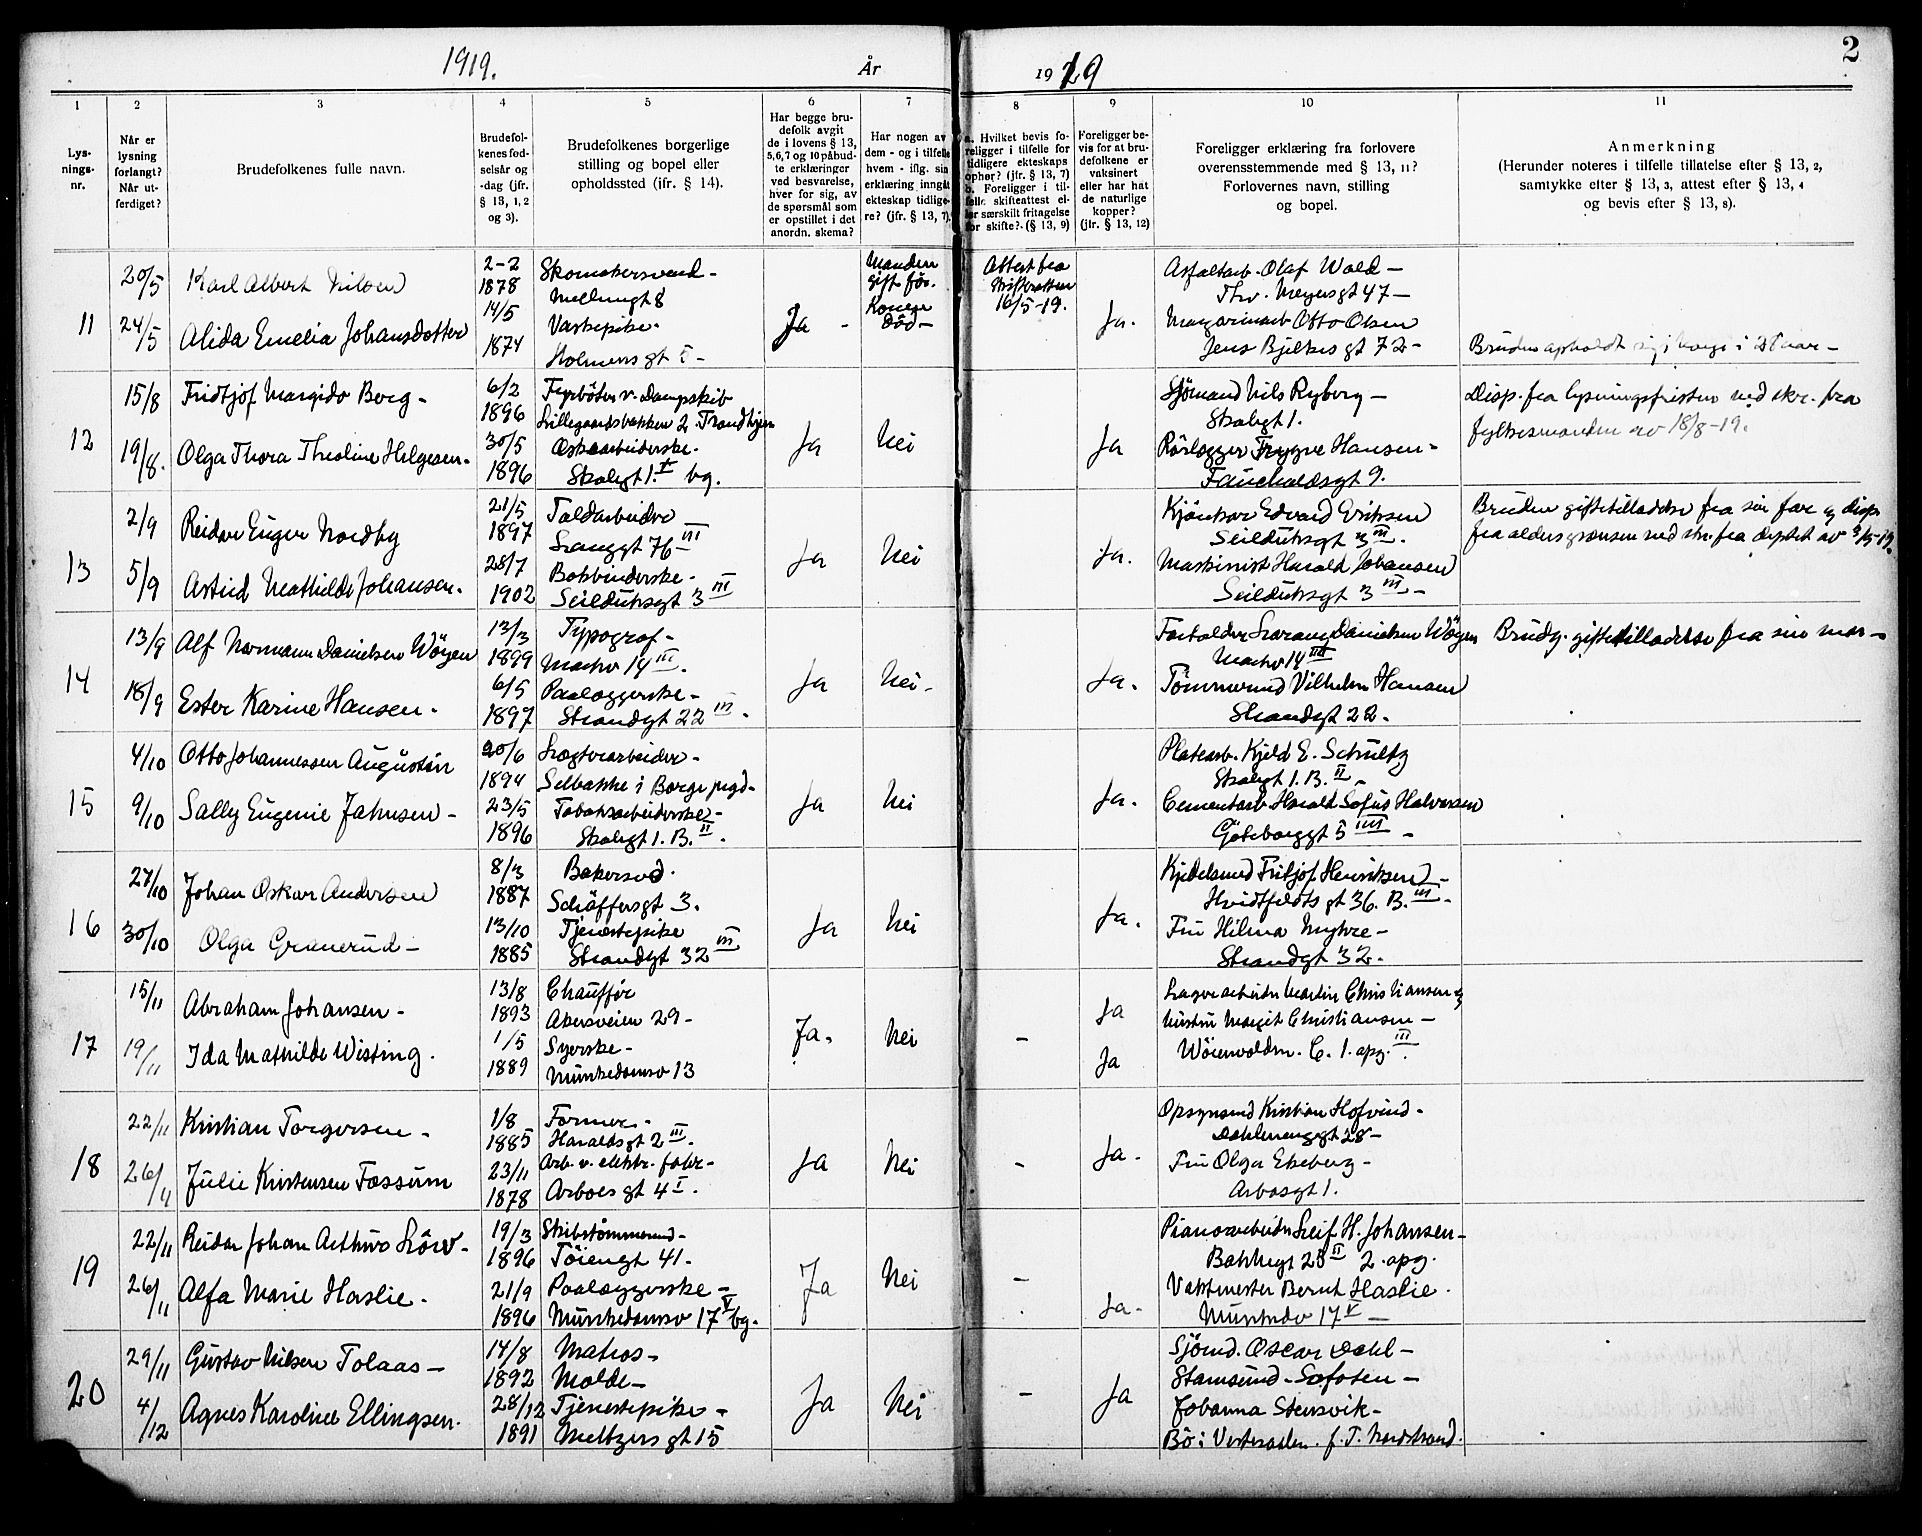 1919.
År
1919
2
1
2
3
4
5
6
7
8
9
10
11
Lys-
nings-
nr.
Når er
lysning
forlangt?
Når ut-
ferdiget?
Brudefolkenes fulle navn.
Brudefol-
kenes fød-
selsår og
-dag (jfr.
§ 13, 1, 2
og 3).
Brudefolkenes borgerlige
stilling og bopel eller
opholdssted (ifr. § 14).
Har begge bru-
defolk avgit
de i lovens § 13,
5,6,7 og 10 påbud-
te erklæringer
ved besvarelse,
hver for sig, av
de spørsmål som
er opstillet i det
anordn. skema?
Har nogen av
dem - og i tilfelle
hvem - iflg. sin
erklæring inngåt
ekteskap tidlige-
re? (jfr. § 13, 7).
a. Hvilket bevis fo-
religger i tilfelle for
tidligere ekteskaps
ophør? (jfr. § 13, 7)
b. Foreligger i til-
felle skifteattest el-
ler særskilt fritagelse
for skifte?. (§ 13, 9)
Foreligger be-
vis for at bru-
defolkene er
vaksinert
eller har hat
de naturlige
kopper?
(jfr. § 13, 12)
Foreligger erklæring fra forlovere
overensstemmende med § 13, 11?
Forlovernes navn, stilling
og bopel.
Anmerkning
(Herunder noteres i tilfelle tillatelse efter § 13, 2,
samtykke efter § 13, 3, attest efter § 13, 4
og bevis efter § 13, 8).
11
20/5
24/5
Karl Albert Nilsen
Alida Emelia Johansdotter
2-2
1878
14/5
1874
Skomakersvend -
Mellumgt 8
Vaskepike.
Holmens gt 5 -
Ja -
Manden
gift før.
Konen
død -
Attest fra
Skifteretten
16/5-19.
Ja.
Asfaltarb. Olaf Wold -
Thv. Meyersgt 47 -
Margarinarb Otto Olsen
Jens Bjelkes gt 72 -
Bruden opholdt sig i Norge i aar -
12
15/8
19/8.
Fridtjof Margido Borg -
Olga Thora Theoline Helgesen.
6/2
1896
30/5
1896
Fyrbøter v. Dampskib
Lillegaardsbakken 2. Trondhjem
Æskearbeiderske.
Skolegt 1. II bg.
Ja
Nei
Ja
Sjømand Nils Ryberg -
Skolegt 1.
Rørlægger Trygve Hansen -
Fauchaldsgt 9.
Disp. fra lysningsfristen ved skr. fra
fylkesmanden av 18/8-19.
13
2/9
5/9
Reidar Euger Nordby
Astrid Mathilde Johansen.
21/5
1897
28/7
1902
Toldarbeider
Langgt 76 III
Bokbinderske -
Seilduksgt 3 III
Ja
Nei
Ja.
Kjørekar Edvard Eriksen
Seilduksgt 3 III.
Maskinist Harald Johansen
Seilduksgt 3 III -
Bruden giftetilladelse fra sin far og disp
fra aldersgrænsen ved skr. fra deptet av 9/5-19.
14
13/9
18/9
Alf Normann Danielsen Wøyen
Ester Karine Hansen.
13/3
1899
6/5
1897
Typograf -
Markv 14 III.
Paalæggerske -
Strandgt 22 III.
Ja
Nei -
Ja.
Forvalter Danielsen Wøyen
Markv 14 III
Tømmermd Vilhelm Hansen
Strandgt 22.
Brudg. giftetilladelse fra sin mor -
15
4/10
9/10
Otto Johannessen Augustin
Sally Eugenie Jahnsen -
20/6
1894
23/5
1896
Selbakke i Borge prgd -
Tobaksarbeiderske -
Skolegt 1. B. II.
Ja
Nei
Ja.
Platearb. Kjeld E. Schultz
Skolegt 1. B. II
Cementarb Harald Sofus Halvorsen
Gøteborggt 5 IIII -
16
27/10
30/10
Johan Oskar Andersen
Olga Granerud -
8/3
1887
13/10
1885
Bakersvd.
Schäffersgt 3.
Tjenestepike
Strandgt 32 III
Ja
Nei
Ja.
Kjedelsmed Fritjof Henriksen -
Hvidtfeldts gt 36. B. III.
Fru Hilma Myhre -
Strandgt 32.
17
15/11
19/11
Abraham Johansen -
Ida Mathilde Wisting.
13/8
1893
1/5
1889
Chauffør
Akersveien 29 -
Syerske -
Munkedamsv 13
Ja.
Nei
-
Ja
Ja
Lagerarbeider Martin Christiansen og
hustru Margit Christiansen -
Wøienvolden. C. 1. opg. III.
18
22/11
26/11
Kristian Torgersen -
Julie Kristensen Fossum
1/8
1885
23/11
1878
Former -
Haraldsgt 2 III.
Arb. v. elektr. fabr -
Arboes gt 4 I.
Ja
Nei
-
Ja.
Opsynsmd Kristian Hofvind -
Dælenenggt 28 -
Fru Olga Ekeberg -
Arbosgt 1.
19
22/11
26/11
Reidar Johan Arthur Lörv -
Alfa Marie Haslie.
19/3
1896
21/9
1896
Skibstømmermd -
Tøiengt 41.
Paalæggerske -
Munkedamsv 17 V bg.
Ja
Nei
-
Ja.
Pianoarbeider Leif H. Johansen -
Bakkegt 23 II 2. opg.
Vaktmester Bernt Haslie.
Munkedv 17 V -
20
29/11
4/12
Gustav Nilsen Tolaas -
Agnes Karoline Ellingsen.
14/8
1892
28/12
1891
Matros -
Molde -
Tjenestepike -
Meltzers gt 15
Ja
Nei
-
Ja
Sjømd. Oscar Dahl -
Stamsund - Lofoten -
Johanna Stensvik -
Bø i Vesteraalen. f. T. Nordstrand.